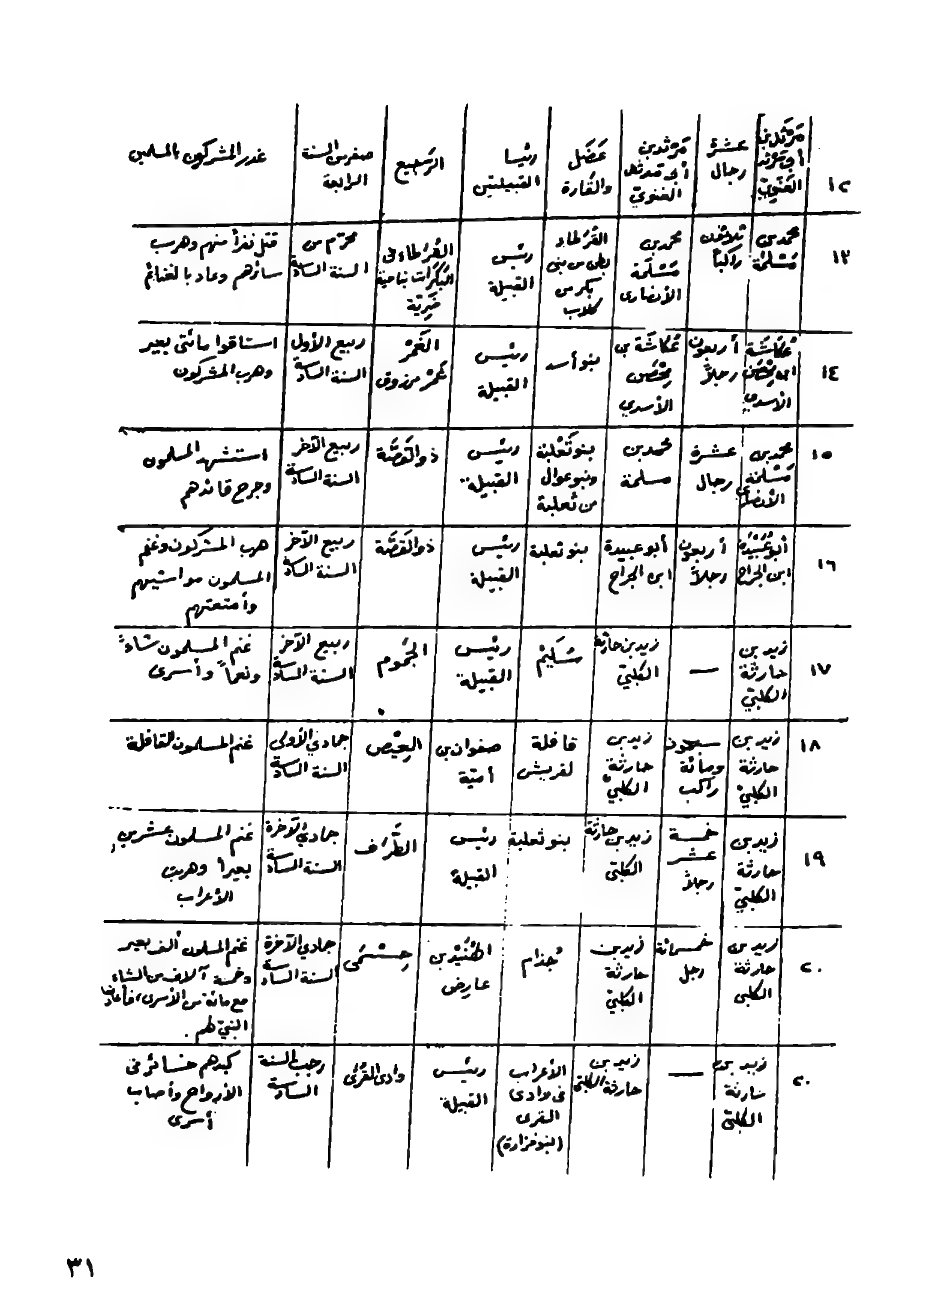 ١٢ مَرْثَد بن أبي مَرْثَد الغَنَوِيّ عشرة رجال مَرْثد بن أبي مرثد الغنويّ عَضَل والقَارة رئيسا القبيلتين الرَّجيع صفر من السنة الرابعة غدر المشركون بالمسلمين
١٣ محمد بن مَسْلمَة ثلاثون راكباً محمد بن مَسْلَمة الأنصاري القُرْطاء بطن من بني بكر من كلاب رئيس القبيلة القُرَطاء في البَكَرَات بناحية ضَرِيّة محرّم من السنة السادسة قتل نفراً منهم وهرب سائرهم وعاد بالغنائم
١٤ عُكّاشَة ابن مِحْصَن الأسدي أربعون رجلاً عُكاشَة بن مِحْصَن الأسدي بنو أسد رئيس القبيلة الغَمْرُ غَمْرُ مرزوق ربيع الأول السنة السادسة استاقوا مائتي بعير وهرب المشركون
١٥ محمد بن مَسْلَمة الأنصاري عشرة رجال محمد بن مسلمة بنو ثَعْلبَة وبنو عوال من ثعلبة رئيس القبيلة ذو القَصَّة ربيع الآخر السنة السادسة استشهد المسلمون وجرح قائدهم
١٦ أبو عُبَيْدَة ابن الجراح أربعون رجلاً أبو عبيدة ابن الجراح بنو ثعلبة رئيس القبيلة ذو القَصَّة ربيع الآخر السنة السادسة هرب المشركون وغنم المسلمون مواشيهم وأمتعتهم
١٧ زيد بن حارثة الكلبيّ — زيد بن حارثة الكلبيّ سُلَيْم رئيس القبيلة الجَمُوم ربيع الآخر السنة السادسة غنم المسلمون شاءً ونعماً وأسرى
١٨ زيد بن حارثة الكلبيّ سبعون ومائة راكب زيد بن حارثة الكلبيّ قافلة لقريش صفوان بن أميّة العِيْص جمادي الأولى السنة السادسة غنم المسلمون القافلة
١٩ زيد بن حارثة الكلبيّ خمسة عشر رجلاً زيد بن حارثة الكلبيّ بنو ثعلبة رئيس القبيلة الطَّرَف جمادي الآخرة السنة السادسة غنم المسلمون عشرين بعيراً وهربت الأعراب
٢٠ زيد بن حارثة الكلبي خمسمائة رجل زيد بن حارثة الكلبيّ جُذام الهُنَيْد بن عارض حِسْمَى جمادي الآخرة السنة السادسة غنم المسلمون ألف بعير وخمسة آلاف من الشاء مع مائة من الأسرى، فأعادها النبيّ لهم.
٢٠ زيد بن حارثة الكلبيّ — زيد بن حارثة الكلبيّ الأعراب في وادي القرى (بنو فزارة) رئيس القبيلة وادي القُرَى رجب السنة السادسة كبدهم خسائر في الأرواح وأصاب أسرى
٣١